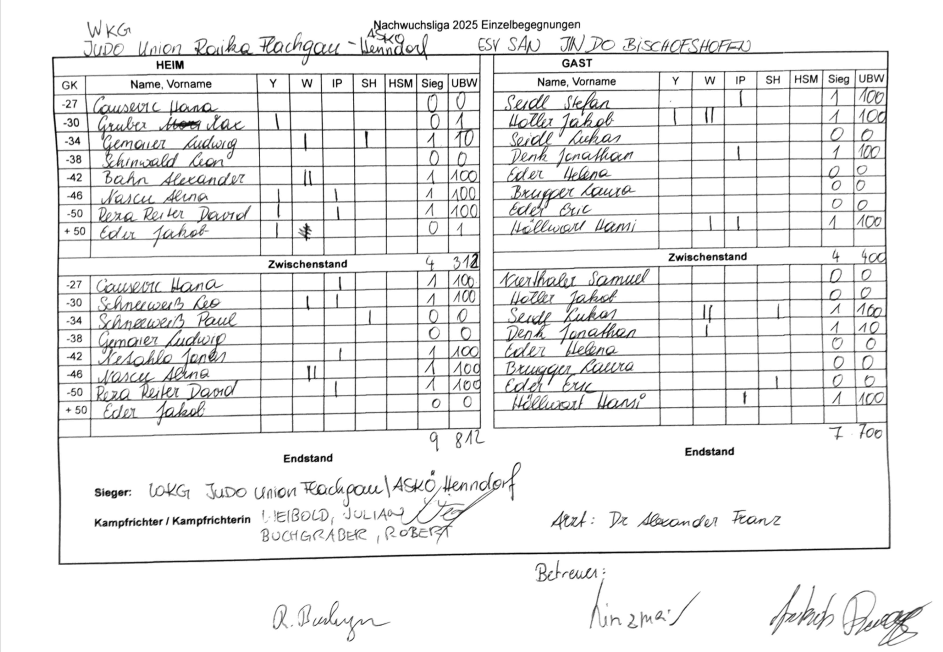 Nachwuchsliga 2025 Einzelbegegnungen
WKG ASKÖ
JUDO Union Raika Flachgau - Henndorf ESV SAN JIN DO BISCHOFSHOFEN
HEIM GAST
GK Name, Vorname Y W IP SH HSM Sieg UBW Name, Vorname Y W IP SH HSM Sieg UBW
-27 Causevic Hana 0 0 Seidl Stefan | 1 100
-30 Gruber Max | 0 1 Hotler Jakob | || 1 100
-34 Gemaier Ludwig | | 1 10 Seidl Lukas 0 0
-38 Schinwald Leon 0 0 Denk Jonathan | 1 100
-42 Bahn Alexander || 1 100 Eder Helena 0 0
-46 Nascu Alina | | 1 100 Brugger Laura 0 0
-50 Reza Reiter David | | 1 100 Eder Eric 0 0
+ 50 Eder Jakob | 0 1 Höllwart Hami | | 1 100
Zwischenstand 4 312 Zwischenstand 4 400
-27 Causevic Hana | 1 100 Vierthaler Samuel 0 0
-30 Schneeweiß Leo | | 1 100 Hotler Jakob 0 0
-34 Schneeweiß Paul | 0 0 Seidl Lukas || | 1 100
-38 Gemaier Ludwig 0 0 Denk Jonathan | 1 10
-42 Jonas | 1 100 Eder Helena 0 0
-46 Nascu Alina || 1 100 Brugger Laura 0 0
-50 Reza Reiter David | 1 100 Eder Eric | 0 0
+ 50 Eder Jakob 0 0 Höllwart Hami | 1 100
9 812 7 700
Endstand Endstand
Sieger: WKG JUDO Union Flachgau/ASKÖ Henndorf
Kampfrichter / Kampfrichterin WEIBOLD, JULIAN
BUCHGRABER, ROBERT Arzt: Dr Alexander Franz
Betreuer: